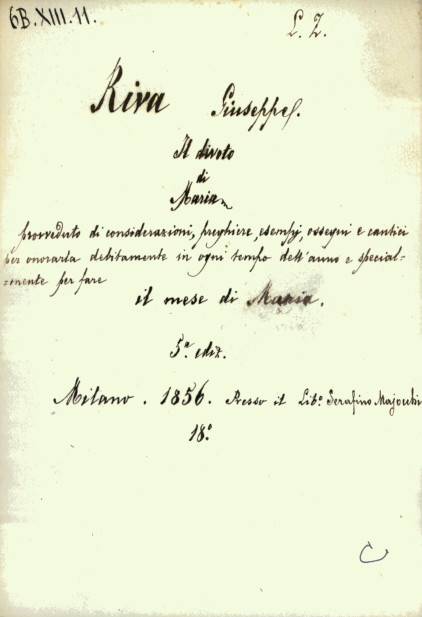 6B.XIII.11.
L. 2.
Riva Giuseppe.
Il divoto
di
Maria
provveduto di considerazioni, preghiere, esempj, ossequi e cantici
per onorarla debitamente in ogni tempo dell'anno e special=
=mente per fare
il mese di Maria.
5ª ediz.
Milano. 1856. Presso il Libº Serafino Majocchi
18º
C